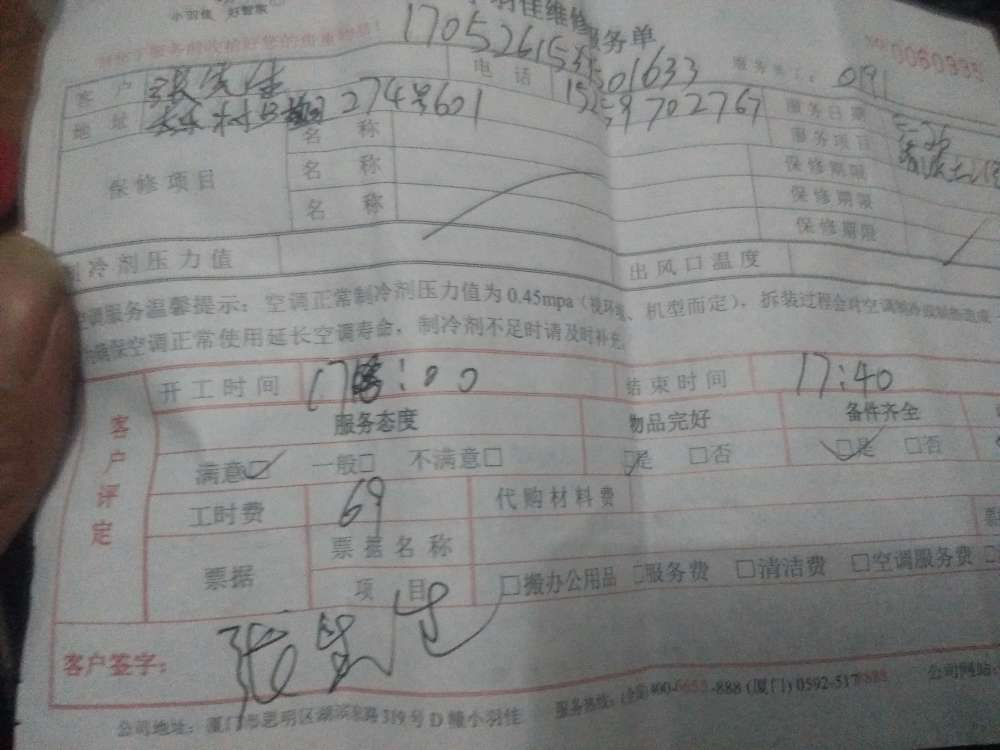 小羽佳 好智家
小羽佳维修服务单
NO 0060335
客户 电话 17052615 服务员工: 0191
地址 274号601 15259702767 服务日期
保修项目 名称 服务项目
名称 保修期限
名称 保修期限
保修期限
制冷剂压力值 出风口温度
空调服务温馨提示:空调正常制冷剂压力值为0.45mpa(视环境、机型而定),拆装过程会对空调制冷或制热造成
确保空调正常使用延长空调寿命,制冷剂不足时请及时补充
客户评定
开工时间 17:00 结束时间 17:40
服务态度 物品完好 备件齐全
满意□✓ 一般□ 不满意□ □✓是 □否 □✓是 □否
工时费 69 代购材料费
票据 票据名称
项目 □搬办公用品 □服务费 □清洁费 □空调服务费
客户签字:
公司地址:厦门市思明区湖滨东路319号D幢小羽佳 服务热线:(全国)400-6655-888 (厦门)0592-517 公司网站: